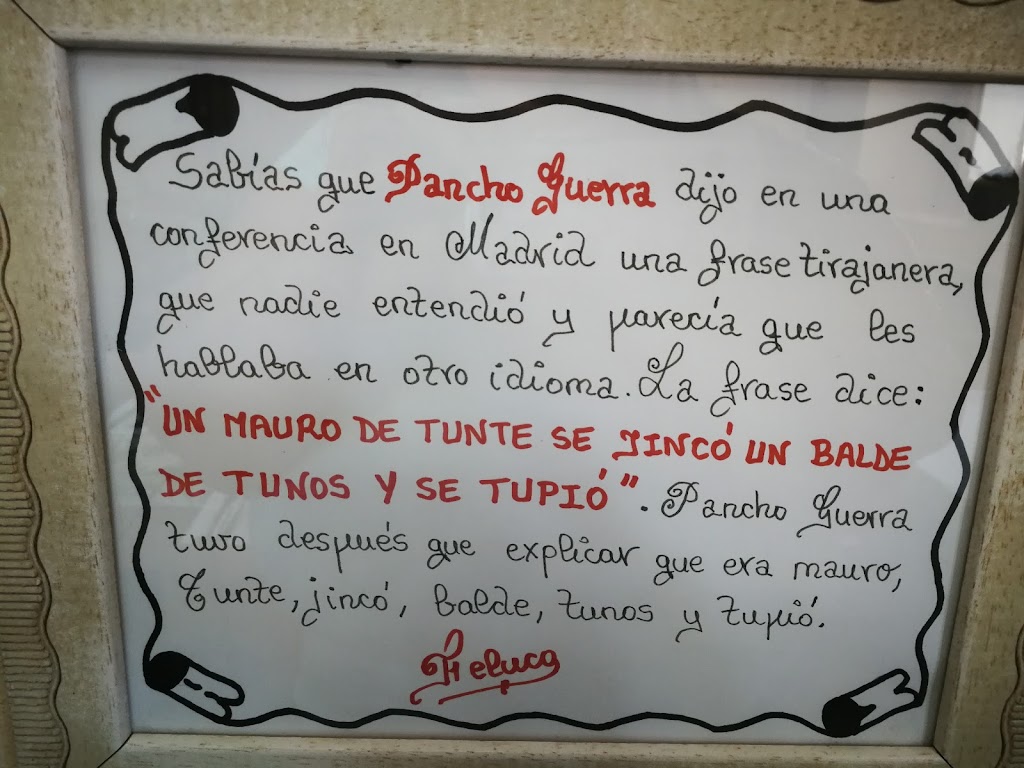 Sabías que Pancho Guerra dijo en una
conferencia en Madrid una frase tirajanera,
que nadie entendió y parecía que les
hablaba en otro idioma. La frase dice:
"UN MAURO DE TUNTE SE JINCÓ UN BALDE
DE TUNOS Y SE TUPIÓ". Pancho Guerra
tuvo después que explicar que era mauro,
Tunte, jincó, balde, tunos y tupió.